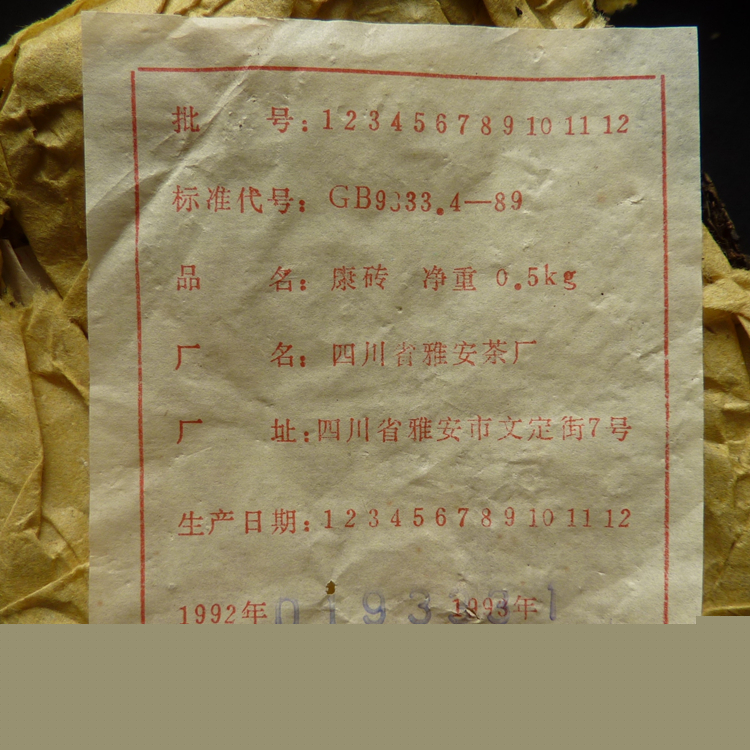 批 号：1 2 3 4 5 6 7 8 9 10 11 12
标准代号：GB9833.4—89
品 名：康砖 净重 0.5kg
厂 名：四川省雅安茶厂
厂 址：四川省雅安市文定街7号
生产日期：1 2 3 4 5 6 7 8 9 10 11 12
1992年 1993年